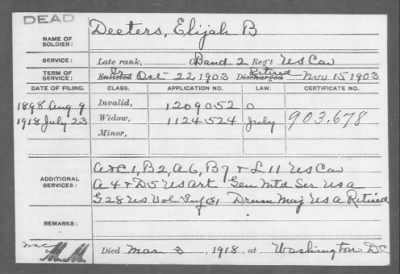 DEAD
NAME OF SOLDIER: Deeters, Elijah B
SERVICE: Late rank, Band 2 Reg't US Cav
TERM OF SERVICE: Enlisted Oct 22, 1903 Discharged Retired Nov 15 1903
DATE OF FILING. CLASS. APPLICATION NO. LAW. CERTIFICATE NO.
1898 Aug 9 Invalid, 1209052 O
1918 July 23 Widow, 1124524 July 903,678
Minor,
ADDITIONAL SERVICES: A & C 1, B 2, A 6, B 7 & L 11 US Cav
A 4 & D 5 US Art Gen Mtd Ser USA
G 28 US Vol Inf Drum Maj USA Retired
REMARKS:
Died Mar 3, 1918, at Washington DC